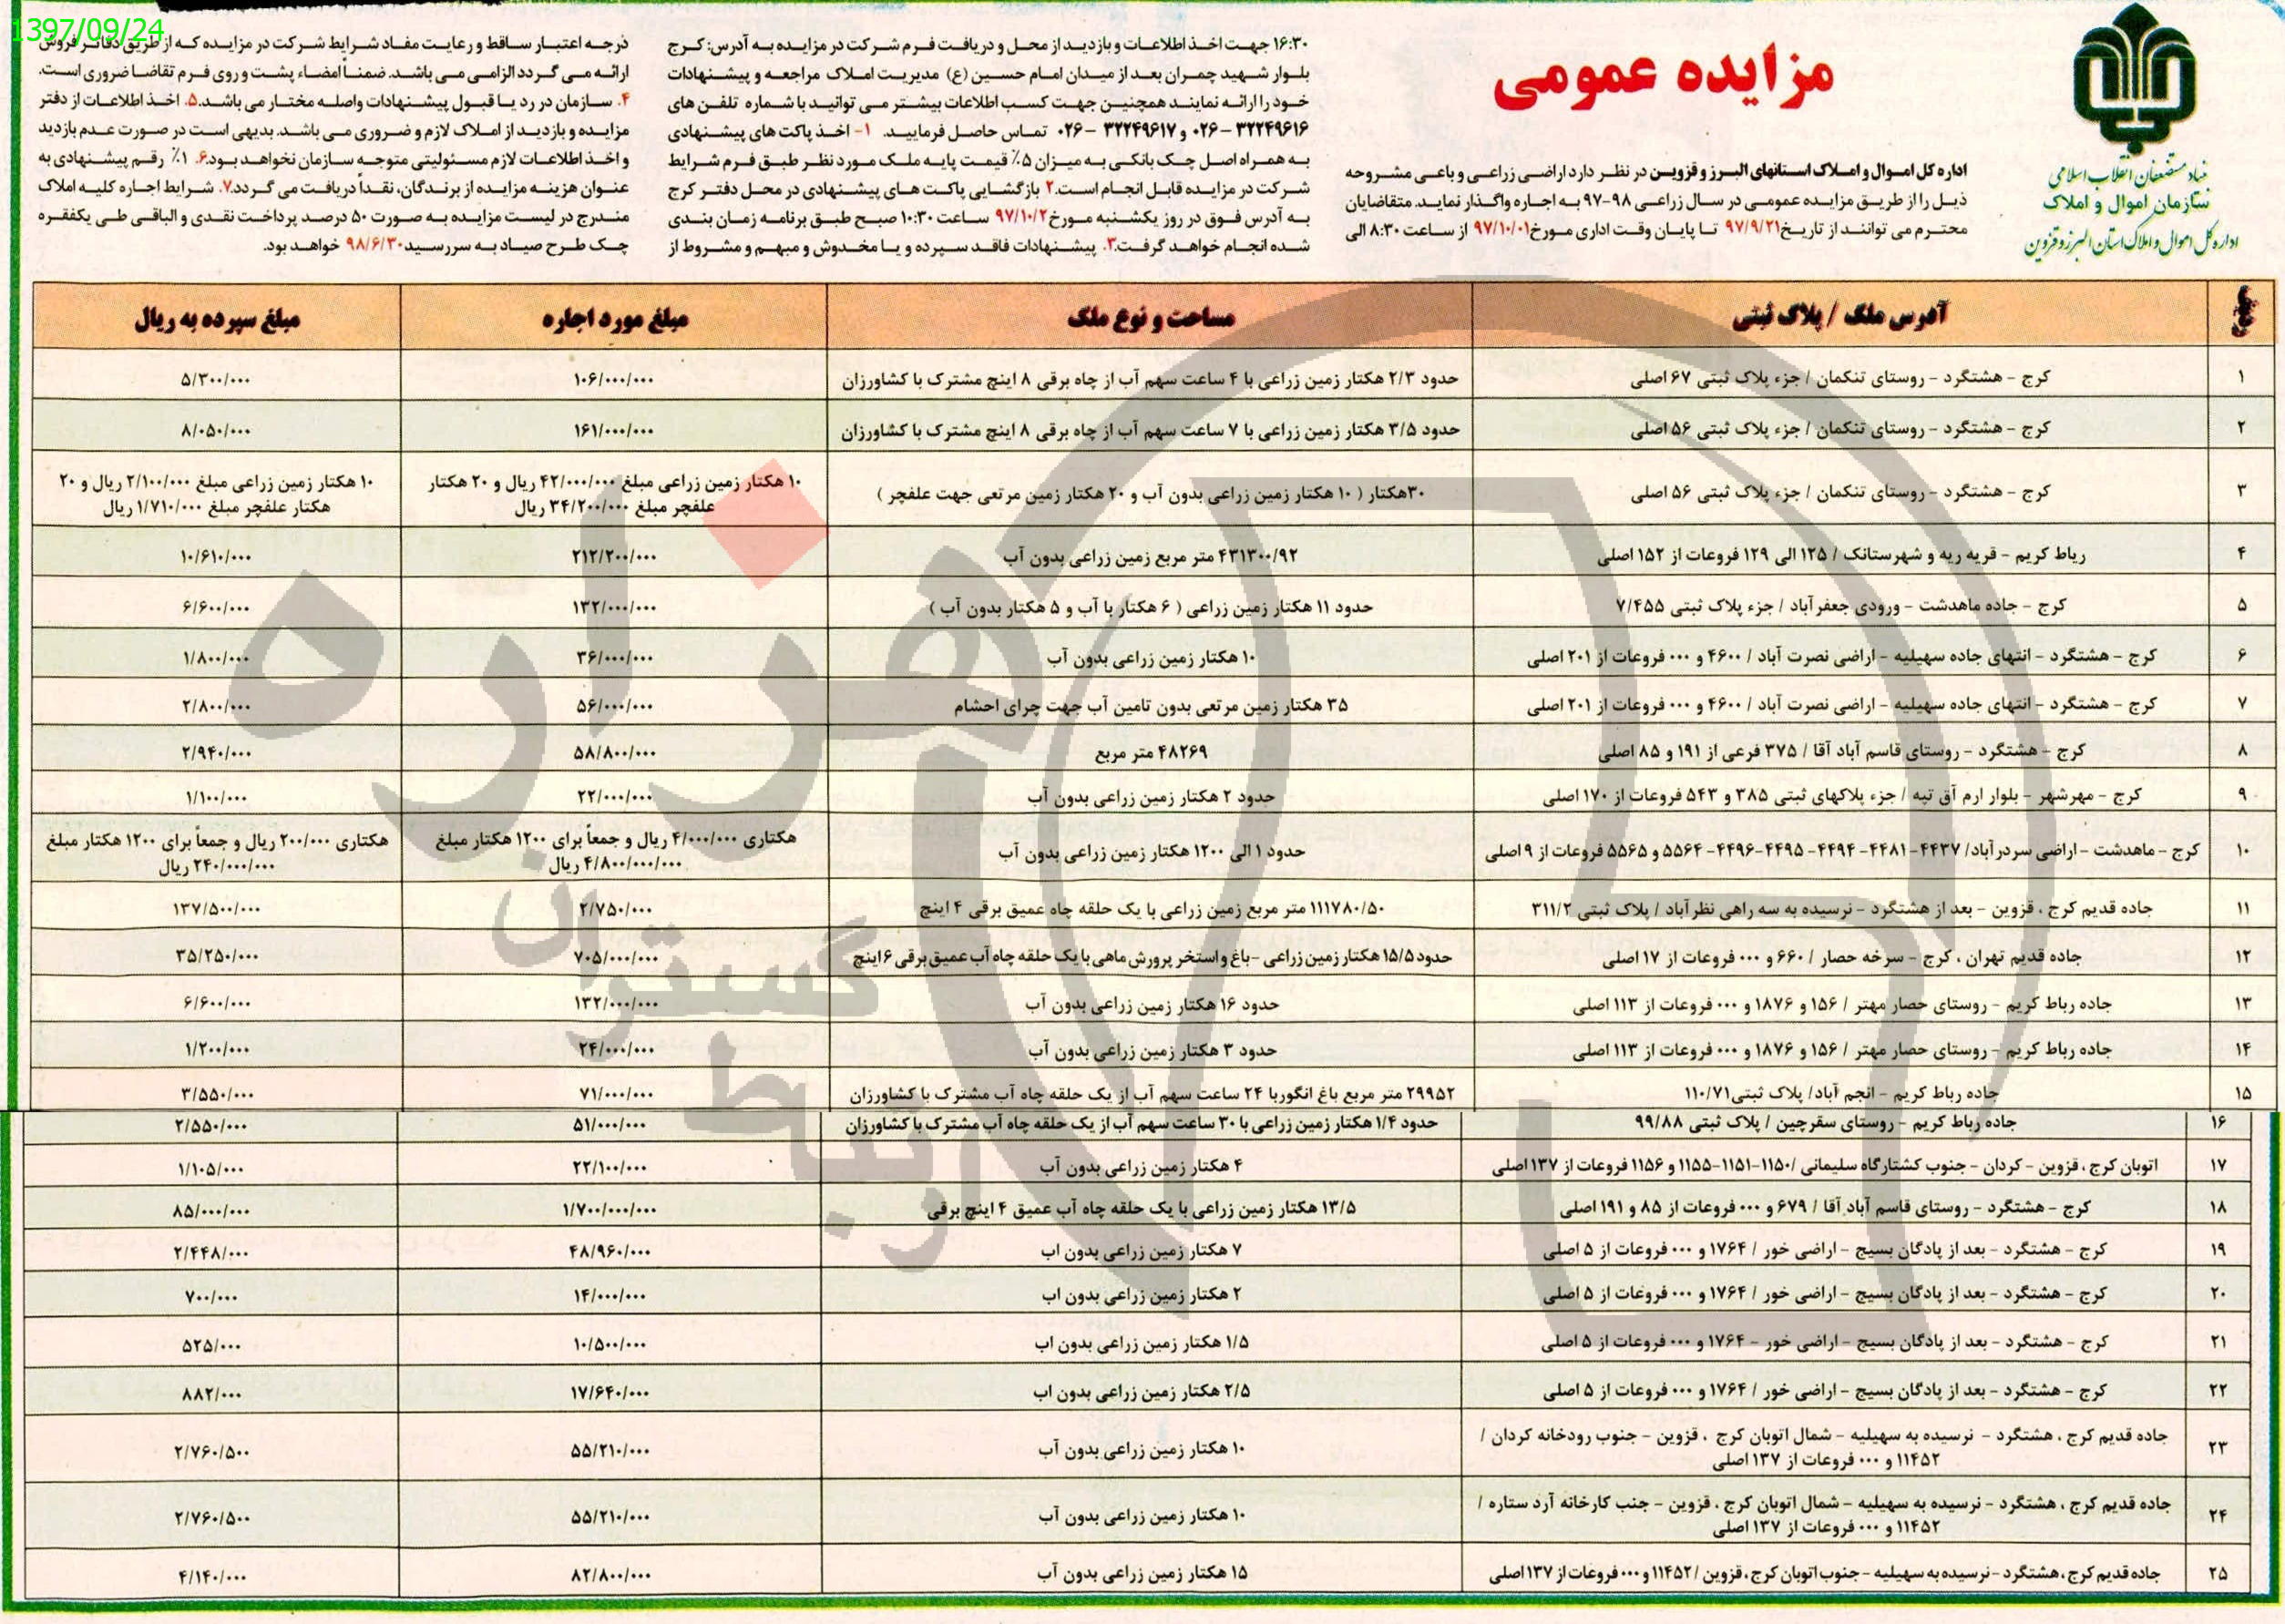 1397/09/24
مزایده عمومی
بنیاد مستضعفان انقلاب اسلامی
سازمان اموال و املاک
اداره کل اموال و املاک استان البرز و قزوین
اداره کل اموال و املاک استانهای البرز و قزوین در نظر دارد اراضی زراعی و باغی مشروحه
ذیل را از طریق مزایده عمومی در سال زراعی ۹۸-۹۷ به اجاره واگذار نماید. متقاضیان
محترم می توانند از تاریخ ۹۷/۹/۲۱ تا پایان وقت اداری مورخ ۹۷/۱۰/۰۱ از ساعت ۸:۳۰ الی
۱۶:۳۰ جهت اخذ اطلاعات و بازدید از محل و دریافت فرم شرکت در مزایده به آدرس: کرج
بلوار شهید چمران بعد از میدان امام حسین (ع) مدیریت املاک مراجعه و پیشنهادات
خود را ارائه نمایند همچنین جهت کسب اطلاعات بیشتر می توانید با شماره تلفن های
۳۲۲۴۹۶۱۶ - ۰۲۶ و ۳۲۲۴۹۶۱۷ - ۰۲۶ تماس حاصل فرمایید. ۱- اخذ پاکت های پیشنهادی
به همراه اصل چک بانکی به میزان ۵٪ قیمت پایه ملک مورد نظر طبق فرم شرایط
شرکت در مزایده قابل انجام است. ۲ بازگشایی پاکت های پیشنهادی در محل دفتر کرج
به آدرس فوق در روز یکشنبه مورخ ۹۷/۱۰/۲ ساعت ۱۰:۳۰ صبح طبق برنامه زمان بندی
شده انجام خواهد گرفت. ۳. پیشنهادات فاقد سپرده و یا مخدوش و مبهم و مشروط از
درجه اعتبار ساقط و رعایت مفاد شرایط شرکت در مزایده که از طریق دفاتر فروش
ارائه می گردد الزامی می باشد. ضمناً امضاء پشت و روی فرم تقاضا ضروری است.
۴. سازمان در رد یا قبول پیشنهادات واصله مختار می باشد. ۵. اخذ اطلاعات از دفتر
مزایده و بازدید از املاک لازم و ضروری می باشد. بدیهی است در صورت عدم بازدید
و اخذ اطلاعات لازم مسئولیتی متوجه سازمان نخواهد بود. ۶. ۱٪ رقم پیشنهادی به
عنوان هزینه مزایده از برندگان، نقداً دریافت می گردد. ۷. شرایط اجاره کلیه املاک
مندرج در لیست مزایده به صورت ۵۰ درصد پرداخت نقدی و الباقی طی یکفقره
چک طرح صیاد به سررسید ۹۸/۶/۳۰ خواهد بود.
ردیف آدرس ملک / پلاک ثبتی مساحت و نوع ملک مبلغ مورد اجاره مبلغ سپرده به ریال
۱ کرج - هشتگرد - روستای تنکمان / جزء پلاک ثبتی ۶۷ اصلی حدود ۲/۳ هکتار زمین زراعی با ۴ ساعت سهم آب از چاه برقی ۸ اینچ مشترک با کشاورزان ۱۰۶/۰۰۰/۰۰۰ ۵/۳۰۰/۰۰۰
۲ کرج - هشتگرد - روستای تنکمان / جزء پلاک ثبتی ۵۶ اصلی حدود ۳/۵ هکتار زمین زراعی با ۷ ساعت سهم آب از چاه برقی ۸ اینچ مشترک با کشاورزان ۱۶۱/۰۰۰/۰۰۰ ۸/۰۵۰/۰۰۰
۳ کرج - هشتگرد - روستای تنکمان / جزء پلاک ثبتی ۵۶ اصلی ۳۰هکتار ( ۱۰ هکتار زمین زراعی بدون آب و ۲۰ هکتار زمین مرتعی جهت علفچر ) ۱۰ هکتار زمین زراعی مبلغ ۴۲/۰۰۰/۰۰۰ ریال و ۲۰ هکتار
علفچر مبلغ ۳۴/۲۰۰/۰۰۰ ریال
۱۰ هکتار زمین زراعی مبلغ ۲/۱۰۰/۰۰۰ ریال و ۲۰
هکتار علفچر مبلغ ۱/۷۱۰/۰۰۰ ریال
۴ رباط کریم - قریه ریه و شهرستانک / ۱۲۵ الی ۱۲۹ فروعات از ۱۵۲ اصلی ۴۳۱۳۰۰/۹۲ متر مربع زمین زراعی بدون آب ۲۱۲/۲۰۰/۰۰۰ ۱۰/۶۱۰/۰۰۰
۵ کرج - جاده ماهدشت - ورودی جعفرآباد / جزء پلاک ثبتی ۷/۴۵۵ حدود ۱۱ هکتار زمین زراعی ( ۶ هکتار با آب و ۵ هکتار بدون آب ) ۱۳۲/۰۰۰/۰۰۰ ۶/۶۰۰/۰۰۰
۶ کرج - هشتگرد - انتهای جاده سهیلیه - اراضی نصرت آباد / ۴۶۰۰ و ... فروعات از ۲۰۱ اصلی ۱۰ هکتار زمین زراعی بدون آب ۳۶/۰۰۰/۰۰۰ ۱/۸۰۰/۰۰۰
۷ کرج - هشتگرد - انتهای جاده سهیلیه - اراضی نصرت آباد / ۴۶۰۰ و ... فروعات از ۲۰۱ اصلی ۳۵ هکتار زمین مرتعی بدون تامین آب جهت چرای احشام ۵۶/۰۰۰/۰۰۰ ۲/۸۰۰/۰۰۰
۸ کرج - هشتگرد - روستای قاسم آباد آقا / ۳۷۵ فرعی از ۱۹۱ و ۸۵ اصلی ۴۸۲۶۹ متر مربع ۵۸/۸۰۰/۰۰۰ ۲/۹۴۰/۰۰۰
۹ کرج - مهرشهر - بلوار ارم آق تپه / جزء پلاکهای ثبتی ۳۸۵ و ۵۴۳ فروعات از ۱۷۰ اصلی حدود ۲ هکتار زمین زراعی بدون آب ۲۲/۰۰۰/۰۰۰ ۱/۱۰۰/۰۰۰
۱۰ کرج - ماهدشت - اراضی سردرآباد/ ۴۴۳۷-۴۴۸۱-۴۴۹۴-۴۴۹۵-۴۴۹۶-۵۵۶۴ و ۵۵۶۵ فروعات از ۹ اصلی حدود ۱ الی ۱۲۰۰ هکتار زمین زراعی بدون آب هکتاری ۴/۰۰۰/۰۰۰ ریال و جمعاً برای ۱۲۰۰ هکتار مبلغ
۴/۸۰۰/۰۰۰/۰۰۰ ریال
هکتاری ۲۰۰/۰۰۰ ریال و جمعاً برای ۱۲۰۰ هکتار مبلغ
۲۴۰/۰۰۰/۰۰۰ ریال
۱۱ جاده قدیم کرج ، قزوین - بعد از هشتگرد - نرسیده به سه راهی نظرآباد / پلاک ثبتی ۳۱۱/۲ ۱۱۱۷۸۰/۵۰ متر مربع زمین زراعی با یک حلقه چاه عمیق برقی ۴ اینچ ۲/۷۵۰/۰۰۰ ۱۳۷/۵۰۰/۰۰۰
۱۲ جاده قدیم تهران ، کرج - سرخه حصار / ۶۶۰ و ... فروعات از ۱۷ اصلی حدود ۱۵/۵ هکتار زمین زراعی - باغ و استخر پرورش ماهی با یک حلقه چاه آب عمیق برقی ۶ اینچ ۷۰۵/۰۰۰/۰۰۰ ۳۵/۲۵۰/۰۰۰
۱۳ جاده رباط کریم - روستای حصار مهتر / ۱۵۶ و ۱۸۷۶ و ... فروعات از ۱۱۳ اصلی حدود ۱۶ هکتار زمین زراعی بدون آب ۱۳۲/۰۰۰/۰۰۰ ۶/۶۰۰/۰۰۰
۱۴ جاده رباط کریم - روستای حصار مهتر / ۱۵۶ و ۱۸۷۶ و ... فروعات از ۱۱۳ اصلی حدود ۳ هکتار زمین زراعی بدون آب ۲۴/۰۰۰/۰۰۰ ۱/۲۰۰/۰۰۰
۱۵ جاده رباط کریم - انجم آباد/ پلاک ثبتی ۱۱۰/۷۱ ۲۹۹۵۲ متر مربع باغ انگور با ۲۴ ساعت سهم آب از یک حلقه چاه آب مشترک با کشاورزان ۷۱/۰۰۰/۰۰۰ ۳/۵۵۰/۰۰۰
۱۶ جاده رباط کریم - روستای سقرچین / پلاک ثبتی ۹۹/۸۸ حدود ۱/۴ هکتار زمین زراعی با ۳۰ ساعت سهم آب از یک حلقه چاه آب مشترک با کشاورزان ۵۱/۰۰۰/۰۰۰ ۲/۵۵۰/۰۰۰
۱۷ اتوبان کرج ، قزوین - کردان - جنوب کشتارگاه سلیمانی / ۱۱۵۰-۱۱۵۱-۱۱۵۵ و ۱۱۵۶ فروعات از ۱۳۷ اصلی ۴ هکتار زمین زراعی بدون آب ۲۲/۱۰۰/۰۰۰ ۱/۱۰۵/۰۰۰
۱۸ کرج - هشتگرد - روستای قاسم آباد آقا / ۶۷۹ و ... فروعات از ۸۵ و ۱۹۱ اصلی ۱۳/۵ هکتار زمین زراعی با یک حلقه چاه آب عمیق ۴ اینچ برقی ۱/۷۰۰/۰۰۰/۰۰۰ ۸۵/۰۰۰/۰۰۰
۱۹ کرج - هشتگرد - بعد از پادگان بسیج - اراضی خور / ۱۷۶۴ و ... فروعات از ۵ اصلی ۷ هکتار زمین زراعی بدون اب ۴۸/۹۶۰/۰۰۰ ۲/۴۴۸/۰۰۰
۲۰ کرج - هشتگرد - بعد از پادگان بسیج - اراضی خور / ۱۷۶۴ و ... فروعات از ۵ اصلی ۲ هکتار زمین زراعی بدون اب ۱۴/۰۰۰/۰۰۰ ۷۰۰/۰۰۰
۲۱ کرج - هشتگرد - بعد از پادگان بسیج - اراضی خور - ۱۷۶۴ و ... فروعات از ۵ اصلی ۱/۵ هکتار زمین زراعی بدون اب ۱۰/۵۰۰/۰۰۰ ۵۲۵/۰۰۰
۲۲ کرج - هشتگرد - بعد از پادگان بسیج - اراضی خور / ۱۷۶۴ و ... فروعات از ۵ اصلی ۲/۵ هکتار زمین زراعی بدون اب ۱۷/۶۴۰/۰۰۰ ۸۸۲/۰۰۰
۲۳ جاده قدیم کرج ، هشتگرد - نرسیده به سهیلیه - شمال اتوبان کرج ، قزوین - جنوب رودخانه کردان /
۱۱۴۵۲ و ... فروعات از ۱۳۷ اصلی
۱۰ هکتار زمین زراعی بدون آب ۵۵/۲۱۰/۰۰۰ ۲/۷۶۰/۵۰۰
۲۴ جاده قدیم کرج ، هشتگرد - نرسیده به سهیلیه - شمال اتوبان کرج ، قزوین - جنب کارخانه آرد ستاره /
۱۱۴۵۲ و ... فروعات از ۱۳۷ اصلی
۱۰ هکتار زمین زراعی بدون آب ۵۵/۲۱۰/۰۰۰ ۲/۷۶۰/۵۰۰
۲۵ جاده قدیم کرج، هشتگرد - نرسیده به سهیلیه - جنوب اتوبان کرج، قزوین / ۱۱۴۵۲ و ... فروعات از ۱۳۷ اصلی ۱۵ هکتار زمین زراعی بدون آب ۸۲/۸۰۰/۰۰۰ ۴/۱۴۰/۰۰۰
هزاره
گستران
ارتباط